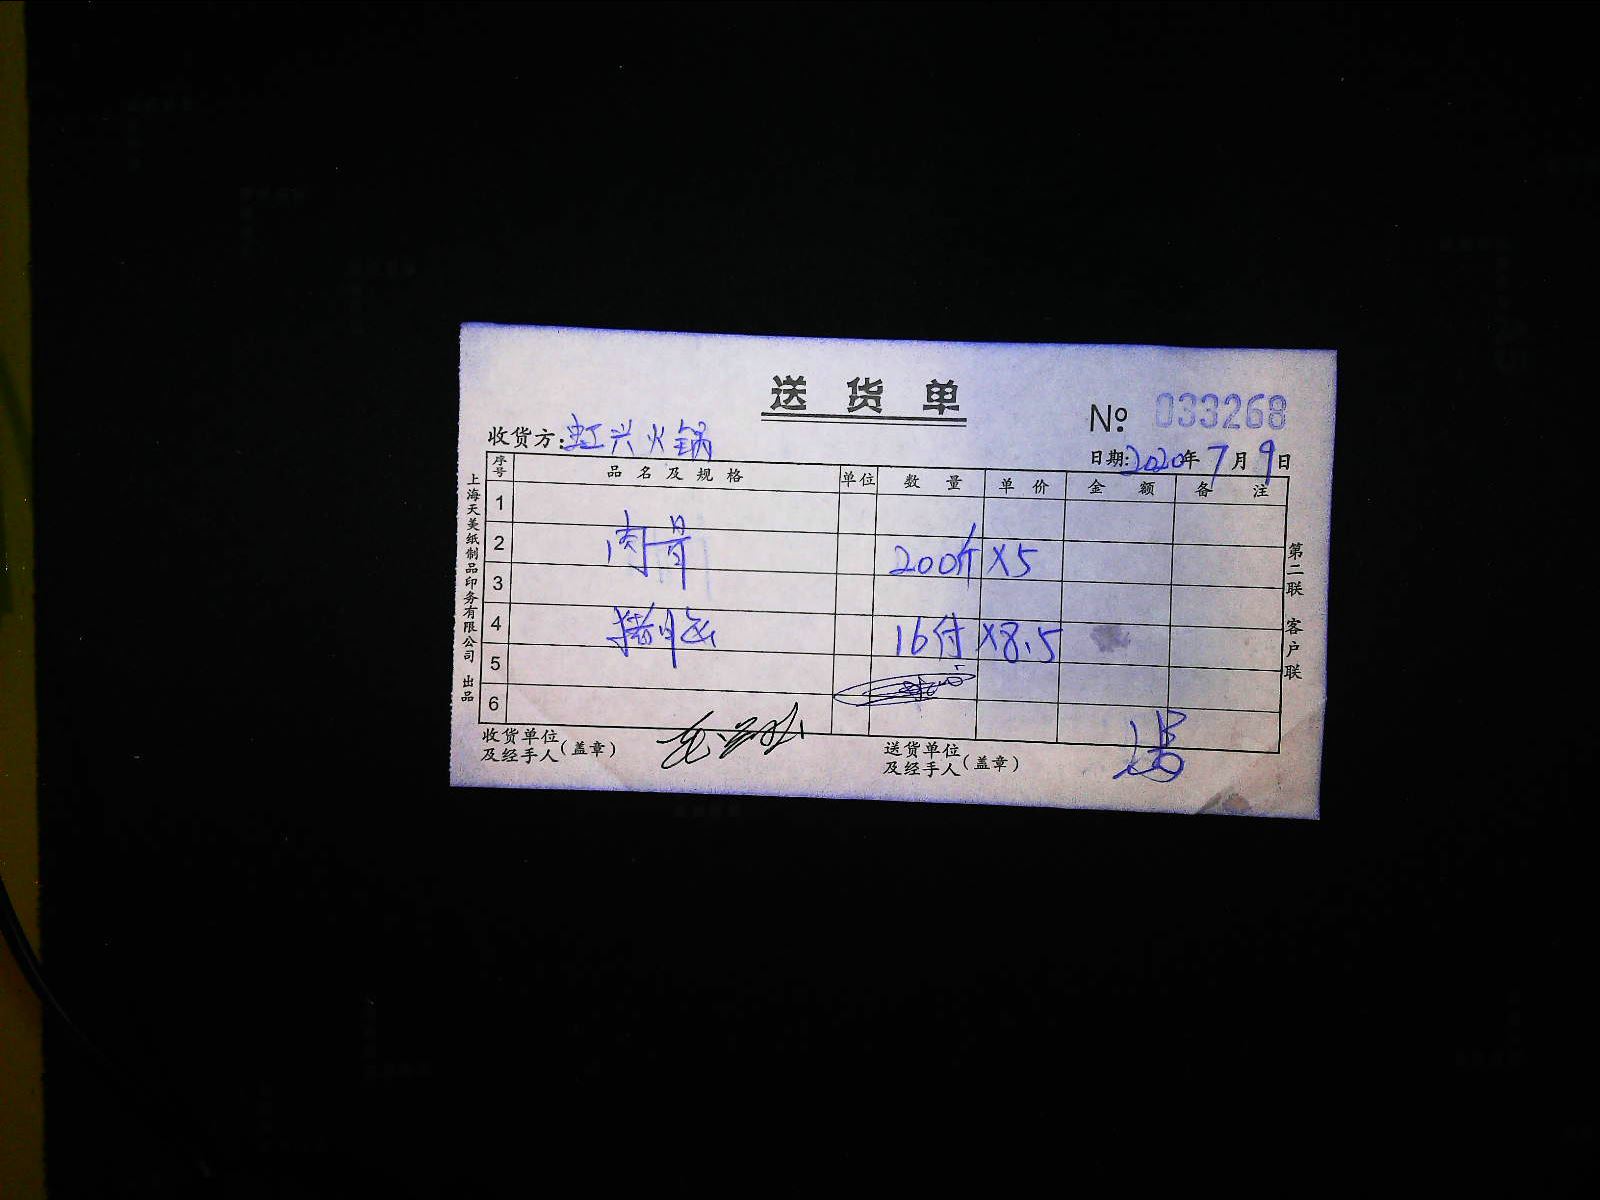 送货单
№ 033268
收货方:虹兴火锅
日期:2020年7月9日
序号 品名及规格 单位 数量 单价 金额 备注
1
2 肉骨 200斤 X5
3
4 猪脑 16付 X8.5
5
6
收货单位及经手人(盖章)
送货单位及经手人(盖章)
上海天美纸制品印务有限公司 出品
第二联 客户联